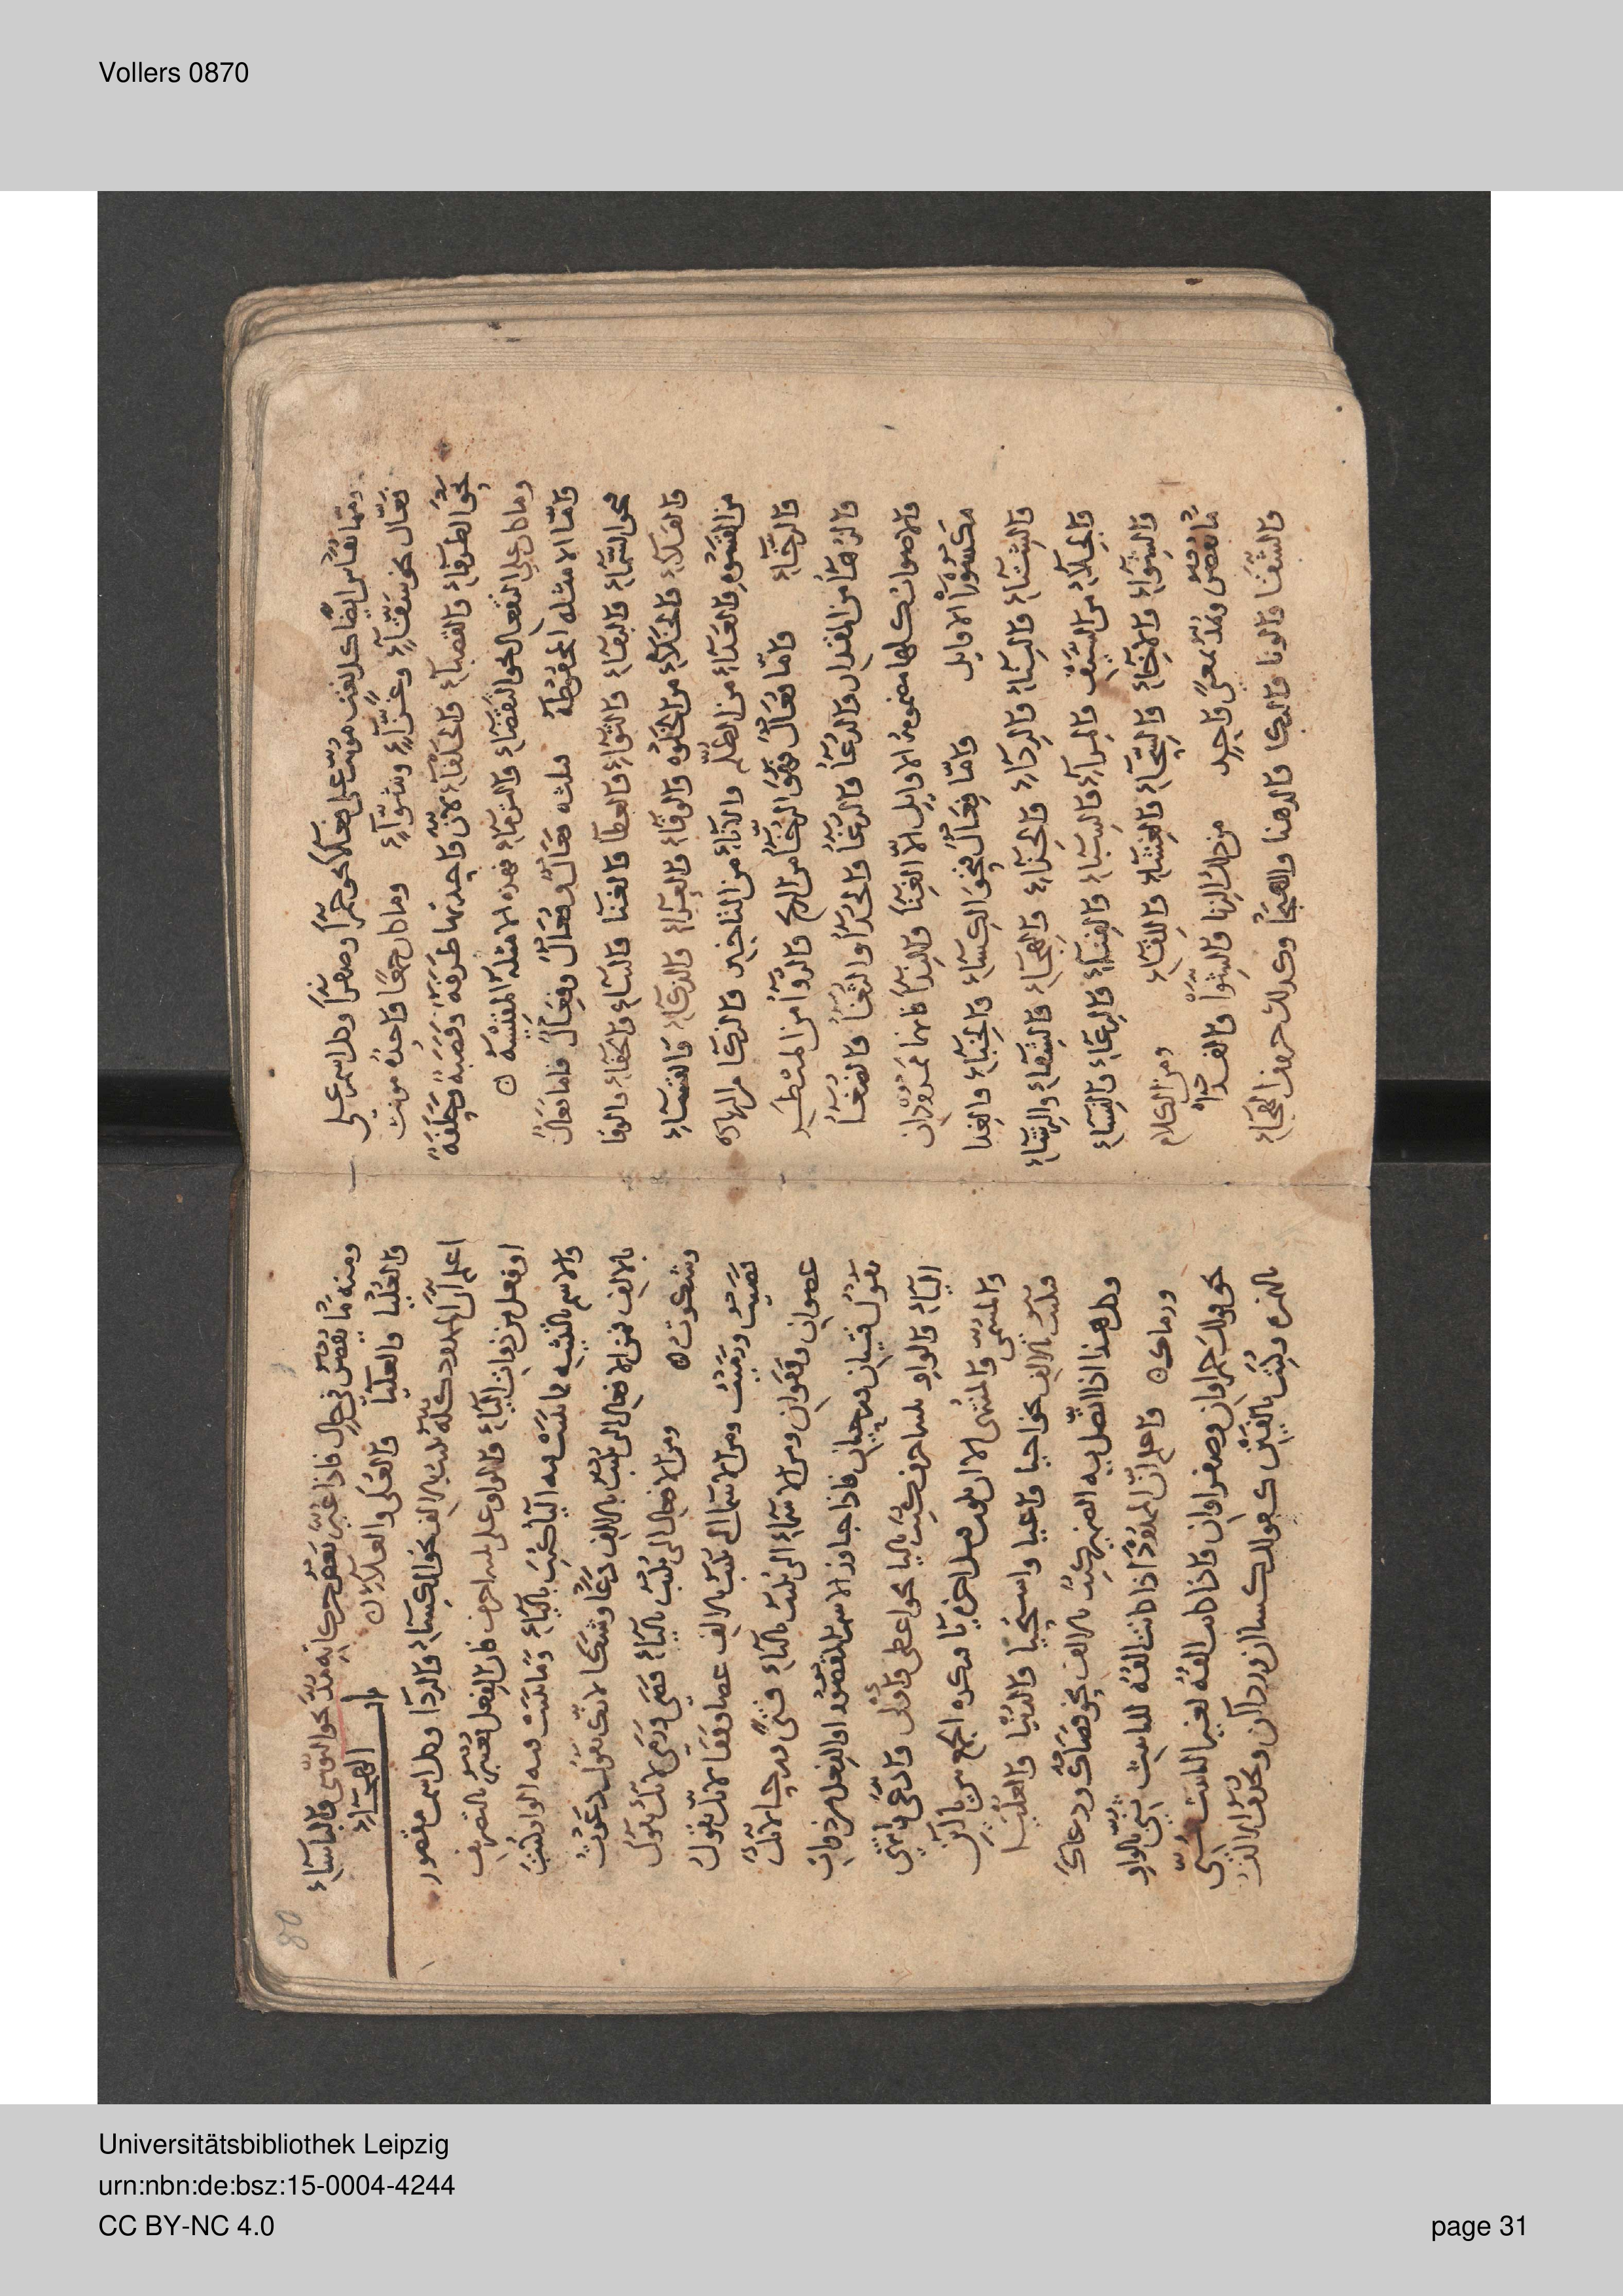 Vollers 0870
ومما يقاس ايضا كل نعت مونث على فعلاء نحو حمراء وصفراء وكل اسم على
فعّال نحو سقّاء وغزّاء وشوّاء وما كان جمعا واحده مونث
نحو الطرفاء والقصباء والحلفاء لان واحدتها طرفة وقصبة وحلفة
وما كان على التفعال نحو التقضاء والترماء فهذه الامثلة المقيسة
واما الامثلة المحفوظة فثلثة فعال وفعال وفعال فاما فعال
نحو السماء والبقاء والثواء والعطا والغنا والسناء والخفاء والوفا
والفلاء والخلاء من الخلوة والوفاء والعزاء والذكاء والفساء
من الفسو والعداء من الظلم والاناء من التاخير والزكا
والرخاء واما فعال فهو الرخا من الريح والروا من المنظر
والزها من المقدار والدعا والرغا والحدا والثغا والضغا
والاصوات كلها مضمومة الاوايل الا الغنا والندا فانهما ممدودان
مكسورا الاوايل واما فعال فنحو الكساء والخباء والغدا
والشتاء والبناء والرداء والحذاء والهجاء والشفاء والرشاء
والجلاء من السيف والمراء والسباء والفناء والرعاء والنساء
والشواء والاخاء والسحاء والغشاء واللقاء ومن الكلام
ما يقصر ويمد بمعنى واحد من ذلك الزنا والشرا والفدا
والشقا والونا والبكا والدهنا والهيجا وكذلك حروف الهجاء
80
ومنه ما يقصر في حال فاذا غير بعض حركاته مد نحو البوسى والباساء
والعليا والعلياء والعلى والعلاء باب الهجاء
اعلم ان الممدود كله يكتب بالالف نحو الكساء والردا وكل اسم مقصور
او فعل من ذوات الياء والواو على ثلثة احرف فان الفعل يعتبر بالتصرف
والاسم بالتثنية فما تبينت فيه الياء كتب بالياء وما تبينت فيه الواو كتبت
بالالف فمن الافعال التي تكتب بالالف دعا وشكا لانك تقول دعوت
وشكوت ومن الافعال التي تكتب بالياء قضى ورمى لانك تقول
قضيت ورميت ومن الاسما التي تكتب بالالف عصا وقفا لانك تقول
عصوان وقفوان ومن الاسماء التي تكتب بالياء فتى ورحى لانك
تقول فتيان ورحيان فاذا جاوز الاسم المقصور او الفعل من ذوات
الياء والواو ثلثة احرف كتبت باليا نحو اعطى واولى وادعى
والمسمى والمنتهى الا ان يكون قبل اخره يا فيكره الجمع بين يائين
فيكتب بالالف نحو احيا واعيا واستحيا والدنيا والعليا
وكل هذا اذا اتصل به الضمير كتب بالالف نحو قضاك ودعاك
ورماك واعلم ان الممدود اذا كانت الفه للتانيث ثنى بالواو
نحو قولك حمراوان وصفراوان فاذا كانت الفه لغير التانيث ثنى
بالهمزة وكتب بالفين كقولك كساان ورداان
Universitätsbibliothek Leipzig
urn:nbn:de:bsz:15-0004-4244
CC BY-NC 4.0
page 31